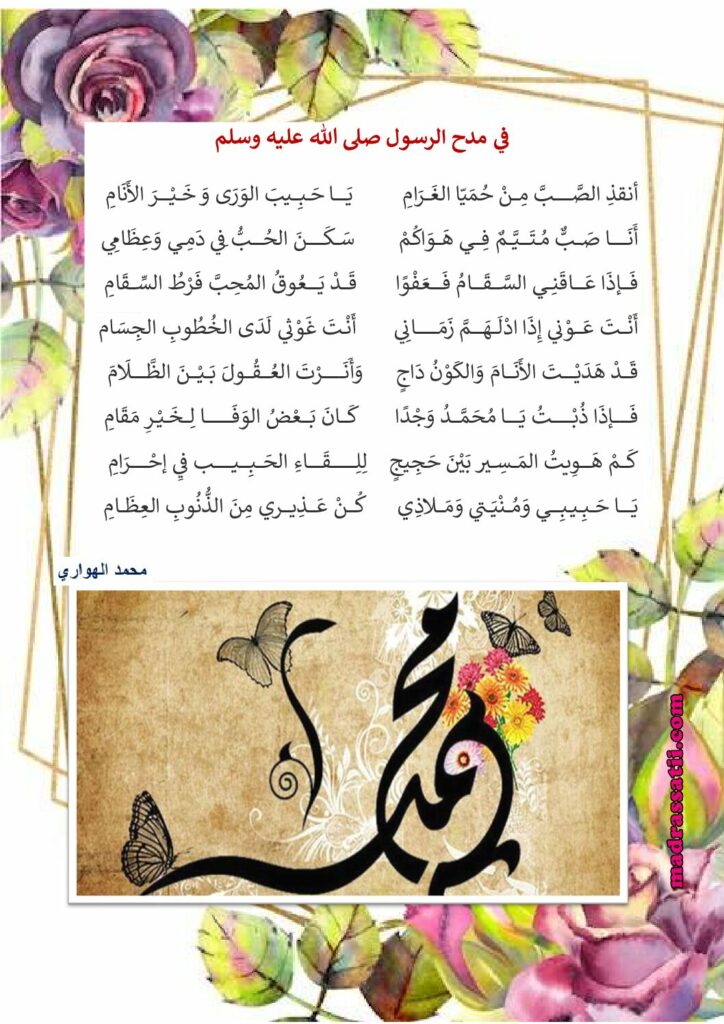 في مدح الرسول صلى الله عليه وسلم
أنقذِ الصَّبَّ مِنْ حُمَيّا الغَرَامِ يَا حَبِيبَ الوَرَى وَ خَيْرَ الأَنَامِ
أَنَا صَبٌّ مُتَيَّمٌ فِي هَوَاكُمْ سَكَنَ الحُبُّ فِي دَمِي وَعِظَامِي
فَإذَا عَاقَنِي السَّقَامُ فَعَفْوًا قَدْ يَعُوقُ المُحِبَّ فَرْطُ السِّقَامِ
أَنْتَ عَوْنِي إِذَا ادْلَهَمَّ زَمَانِي أَنْتَ غَوْثِي لَدَى الخُطُوبِ الجِسَام
قَدْ هَدَيْتَ الأَنَامَ وَالكَوْنُ دَاجٍ وَأَنَرْتَ العُقُولَ بَيْنَ الظَّلَامَ
فَإذَا ذُبْتُ يَا مُحَمَّدُ وَجْدًا كَانَ بَعْضُ الوَفَا لِخَيْرِ مَقَامِ
كَمْ هَوِيتُ المَسِير بَيْنَ حَجِيجٍ لِلِقَاءِ الحَبِيبِ فِي إحْرَامِ
يَا حَبِيبِي وَمُنْيَتِي وَمَلاذِي كُنْ عَذِيرِي مِنَ الذُّنُوبِ العِظَامِ
محمد الهواري
محمد
madrassatii.com